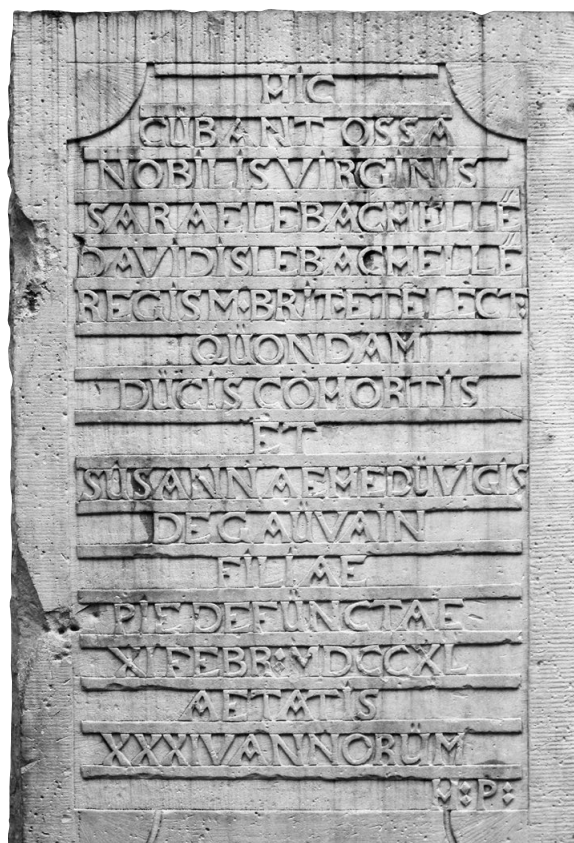 HIC
CÜBANT OSSA
NOBILIS VIRGINIS
SARAE LE BACHELLÉ
DAVIDIS LE BACHELLÉ
REGIS M·BRIT·ET ELECT:
QÜONDAM
DÜCIS COHORTIS
ET
SÜSANNAE HEDÜVIGIS
DE GAÜVAIN
FILIAE
PIE DEFÜNCTAE
XI FEBR: MDCCXL
AETATIS
XXXIV ANNORÜM